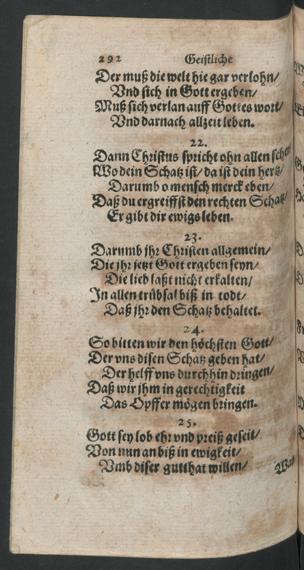 292 Geistliche
Der muß die welt hie gar verlohn/
Vnd sich in Gott ergeben/
Muß sich verlan auff Gottes wort/
Vnd darnach allzeit leben.
22.
Dann Christus spricht ohn allen
Wo dein Schatz ist/ da ist dein hertz/
Darumb o mensch merck eben/
Daß du ergreiffst den rechten Schatz/
Er gibt dir ewigs leben.
23.
Darumb jhr Christen allgemein/
Die jhr jetzt Gott ergeben seyn/
Die lieb laßt nicht erkalten/
In allen trübsal biß in todt/
Daß jhr den Schatz behaltet.
24.
So bitten wir den höchsten Gott/
Der vns disen Schatz geben hat/
Der helff vns durchhin dringen/
Daß wir jhm in gerechtigkeit
Das Opffer mögen bringen.
25.
Gott sey lob ehr vnd preiß geseit/
Von nun an biß in ewigkeit/
Vmb diser gutthat willen/